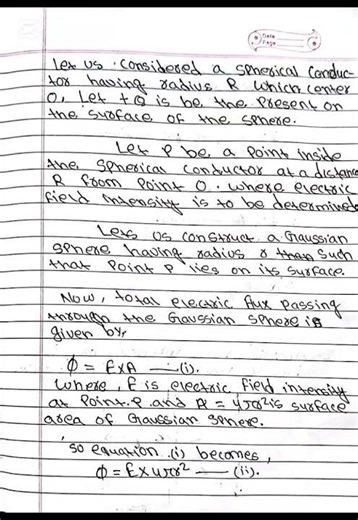 Date
Page
Let us. Considered a spherical conduc-
tor having radius R which center
O, Let +Q is be the present on
the surface of the sphere.
Let P be a point inside
the spherical conductor at a distance
R from point O. where electric
field intensity is to be determined
Lets us construct a Gaussian
sphere having radius r such
that point P lies on its surface.
Now, total electric flux passing
through the Gaussian sphere is
given by,
Φ = E×A —— (i).
where, E is electric field intensity
at point.P and A = 4πr² is surface
area of Gaussian sphere.
so equation (i) becomes,
Φ = E × 4πr² —— (ii).